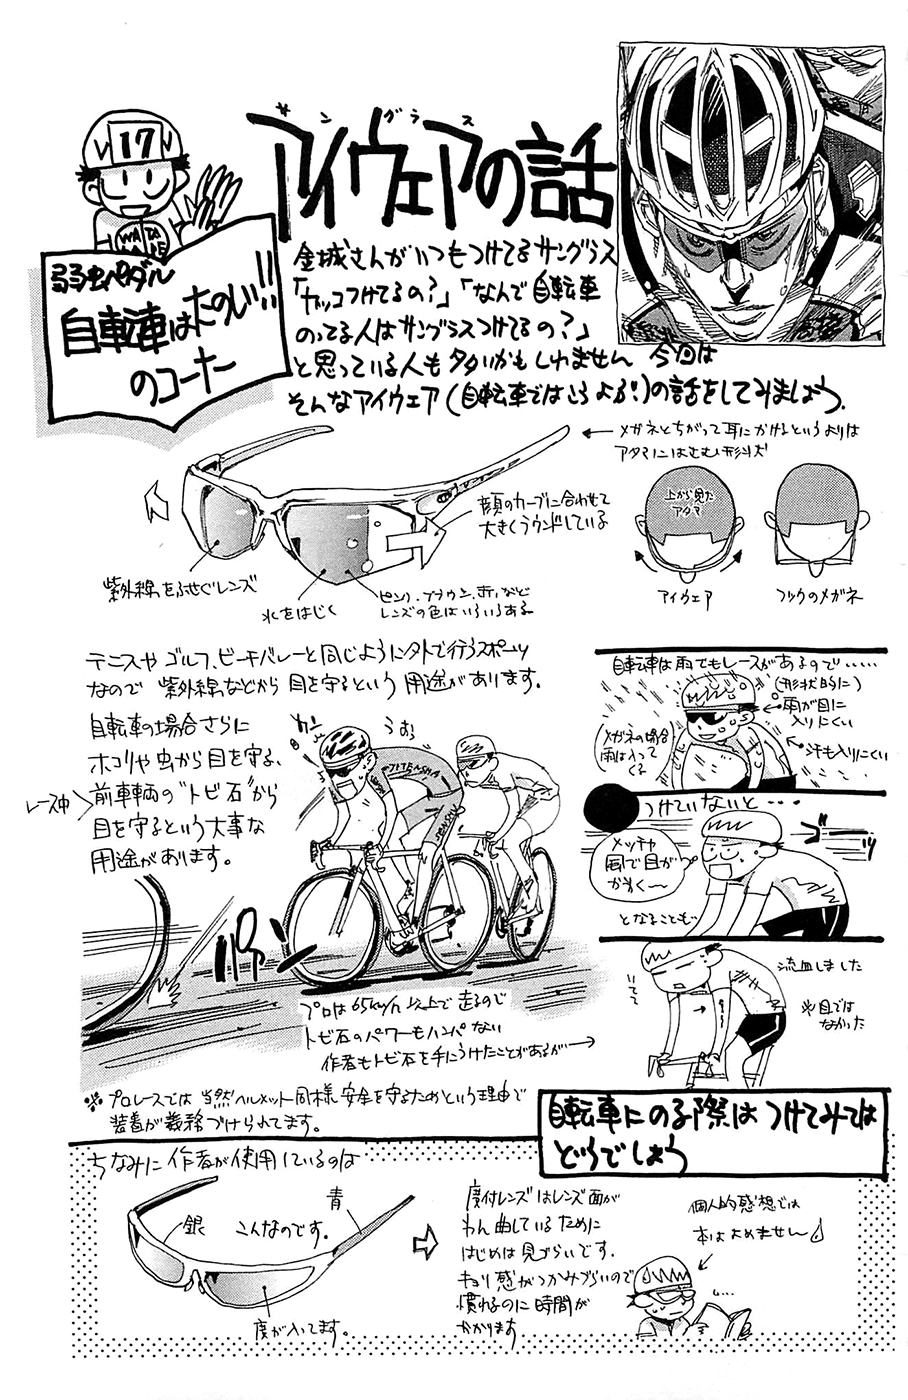 17
WATARE
弱虫ペダル
自転車はたのしい!!
のコーナー
サングラス
アイウェアの話
金城さんがいつもつけてるサングラス
「カッコつけてるの?」「なんで自転車
のってる人はサングラスつけてるの?」
と思っている人も多いかもしれません 今回は
そんなアイウェア(自転車ではこうよぶ!)の話をしてみましょう.
←メガネとちがって耳にかけるというよりは
アタマにはさむ形状だ
顔のカーブに合わせて
大きくラウンドしている
紫外線をふせぐレンズ
水をはじく
ピンク、ブラウン、赤、など
レンズの色はいろいろある
上から見た
アタマ
アイウェア
フツウのメガネ
テニスや ゴルフ、ビーチバレーと同じように外で行うスポーツ
なので 紫外線などから 目を守るという 用途があります。
自転車の場合さらに
ホコリや虫から目を守る、
レース中
前車輌の“トビ石”から
目を守るという大事な
用途があります。
カン
うお
JITENSHA
SENSHU
プロは65km/h 以上で走るので
トビ石のパワーもハンパない
作者もトビ石を手にうけたことがあるが→
※プロレースでは 当然ヘルメット同様 安全を守るためという理由で
装着が義務づけられてます。
自転車は雨でもレースがあるので.....
(形状的に)
←雨が目に
入りにくい
メガネの場合
雨は入って
くる
汗も入りにくい
つけていないと...
メッチャ
風で目が
かわく〜
となることも
流血しました
※目では
なかった
自転車にのる際は つけてみては
どうでしょう
ちなみに 作者が使用しているのは
銀
こんなのです。
青
度が入ってます。
度付レンズはレンズ面が
わん曲しているために
はじめは見づらいです.
キョリ感がつかみづらいので
慣れるのに時間が
かかります
個人的感想では
本はよめません